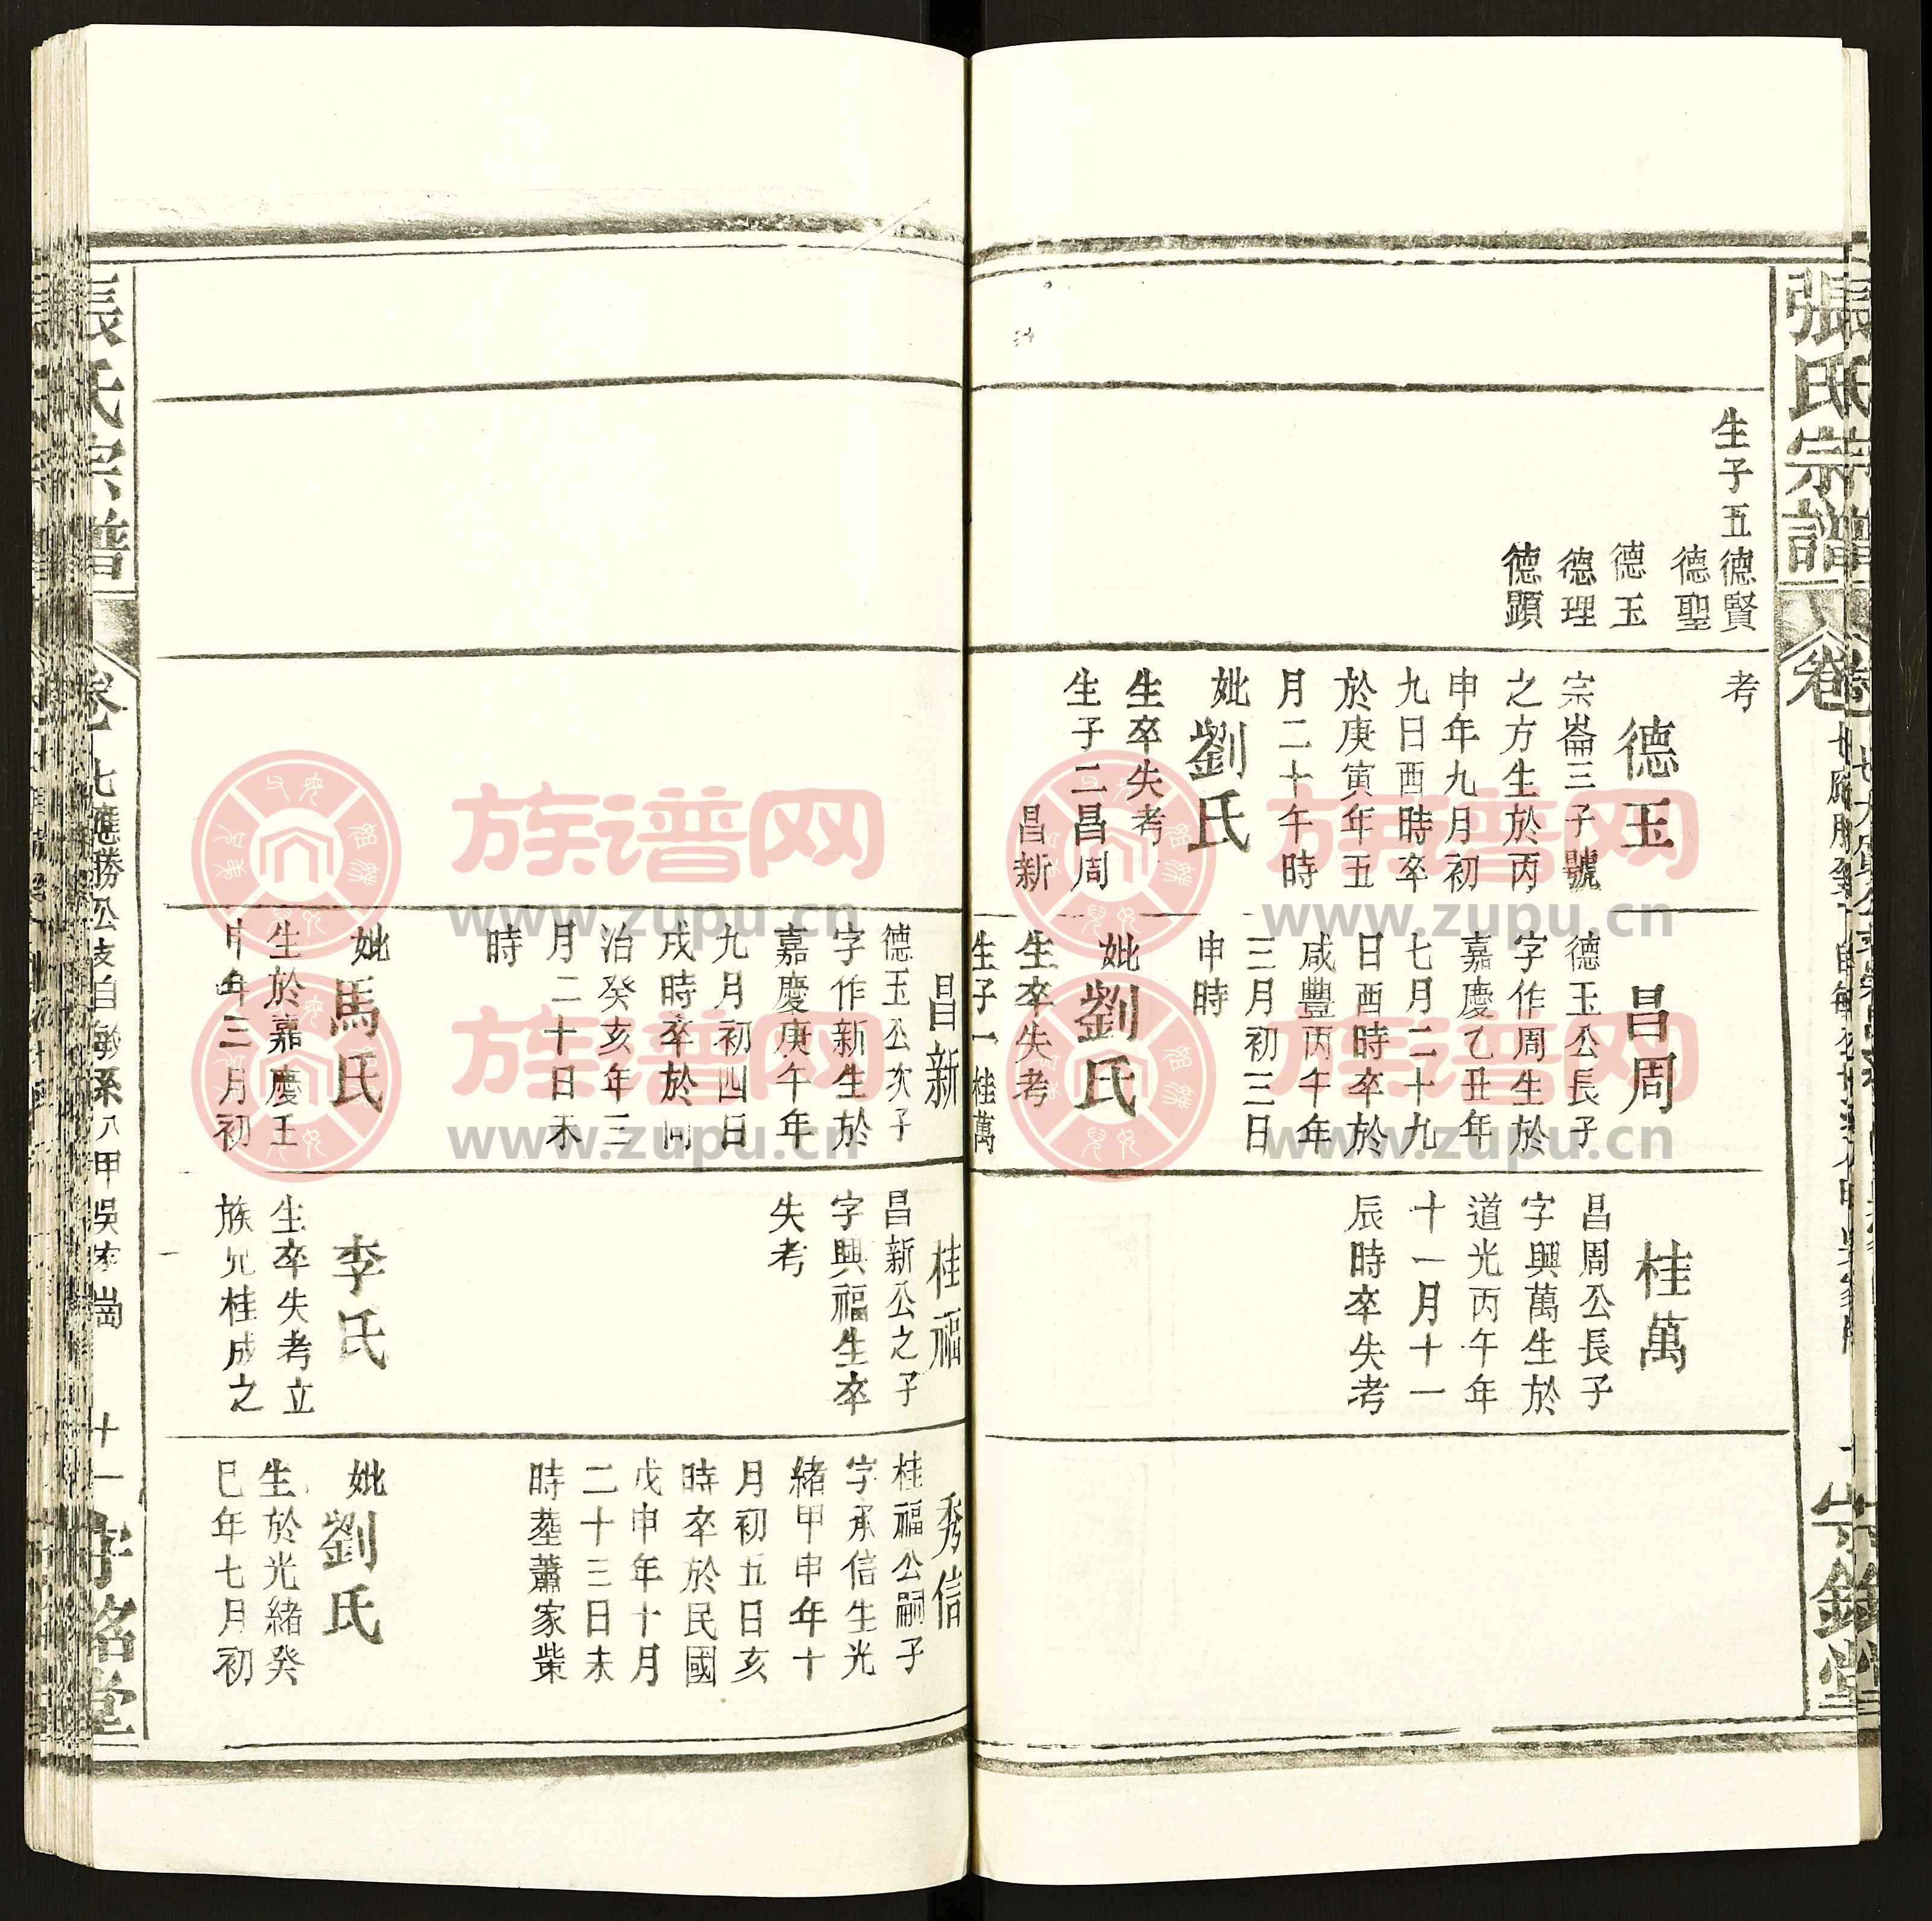 張氏宗譜
卷
生子五德賢
德聖
德玉
德理
德顯
考
德玉
宗崙三子號
之方生於丙
申年九月初
九日酉時卒
於庚寅年五
月二十午時
妣劉氏
生卒失考
生子二昌周
昌新
昌周
德玉公長子
字作周生於
嘉慶乙丑年
七月二十九
日酉時卒於
咸豐丙午年
三月初三日
申時
妣劉氏
生卒失考
生子一桂萬
桂萬
昌周公長子
字興萬生於
道光丙午年
十一月十一
辰時卒失考
昌新
德玉公次子
字作新生於
嘉慶庚午年
九月初四日
戌時卒於同
治癸亥年三
月二十日未
時
妣馬氏
生於嘉慶壬
申年三月初
桂福
昌新公之子
字興福生卒
失考
李氏
生卒失考立
族兄桂成之
秀信
桂福公嗣子
字承信生光
緒甲申年十
月初五日亥
時卒於民國
戊申年十月
二十三日未
時塟蕭家柴
妣劉氏
生於光緒癸
巳年七月初
張氏宗譜
卷
七應勝公支自敏系八甲吳家崗
十一
族谱网
www.zupu.cn
族谱网
www.zupu.cn
族谱网
www.zupu.cn
族谱网
www.zupu.cn